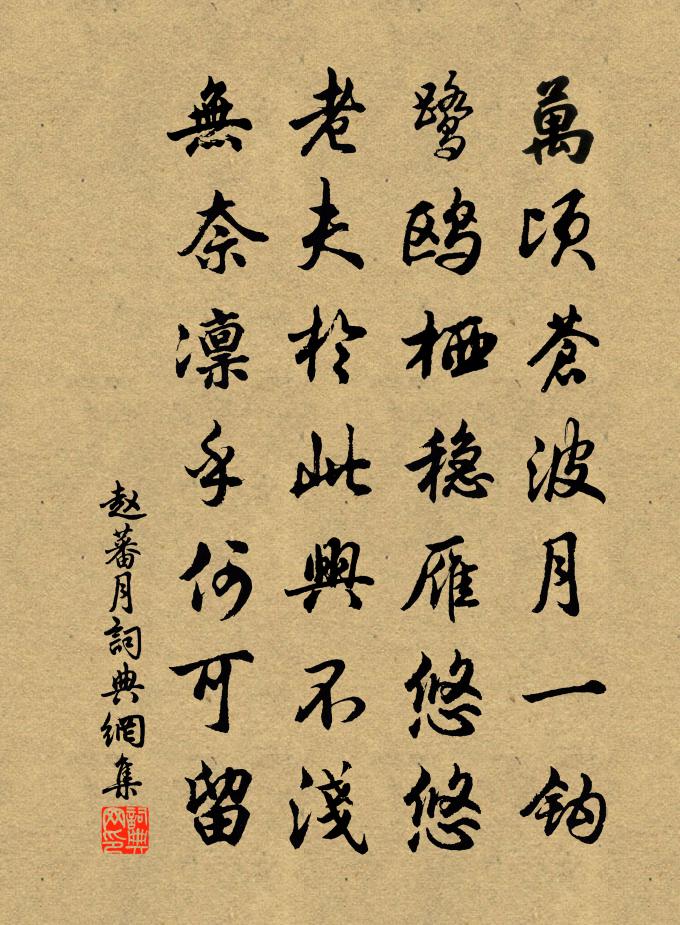 萬頃蒼波月一鈎
鷺鸥栖穏雁悠悠
老夫於此興不淺
無奈凛乎何可留
赵蕃月詞典網集
詞典网印